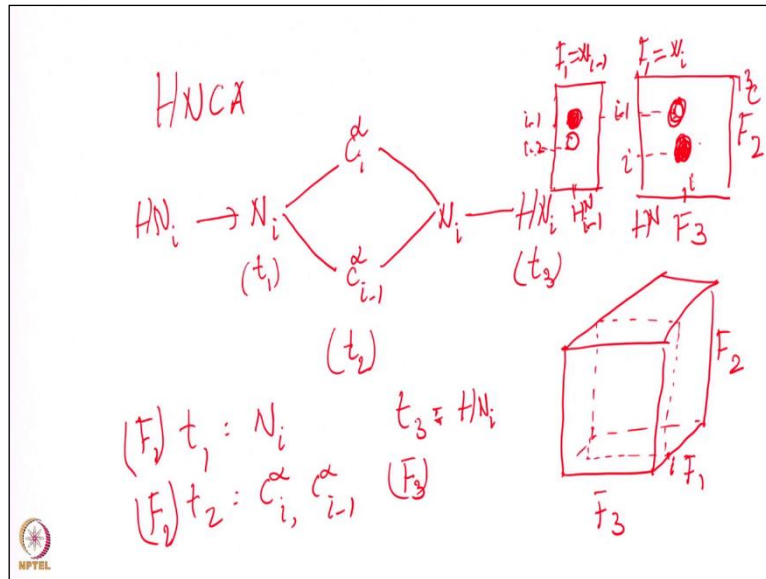 HNCA
HN_i → N_i
(t_1)
C^α_i
C^α_{i-1}
(t_2)
N_i — HN_i
(t_3)
F_1 = N_{i-1}
i-1
i-2
H^N_{i-1}
F_1 = N_i
i-1
i
13C
F_2
i
HN F_3
F_2
i
F_1
F_3
(F_1) t_1 : N_i
(F_2) t_2 : C^α_i, C^α_{i-1}
t_3 = HN_i
(F_3)
NPTEL